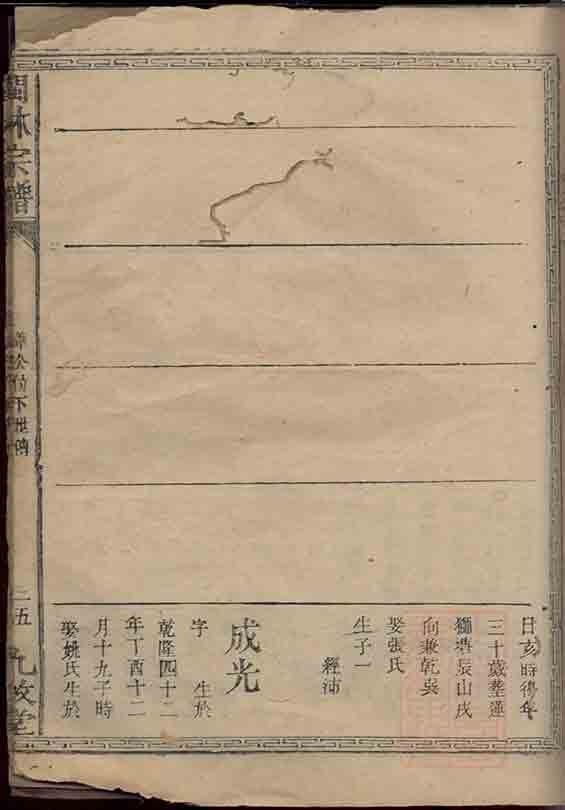 日亥時得年
三十歲塟蓮
獅塘辰山戌
向兼乾巽
娶張氏
生子一
經沛
成光
字 生於
乾隆四十二
年丁酉十二
月十九子時
娶姚氏生於
閩林宗譜
公位下世傳
五
九牧堂